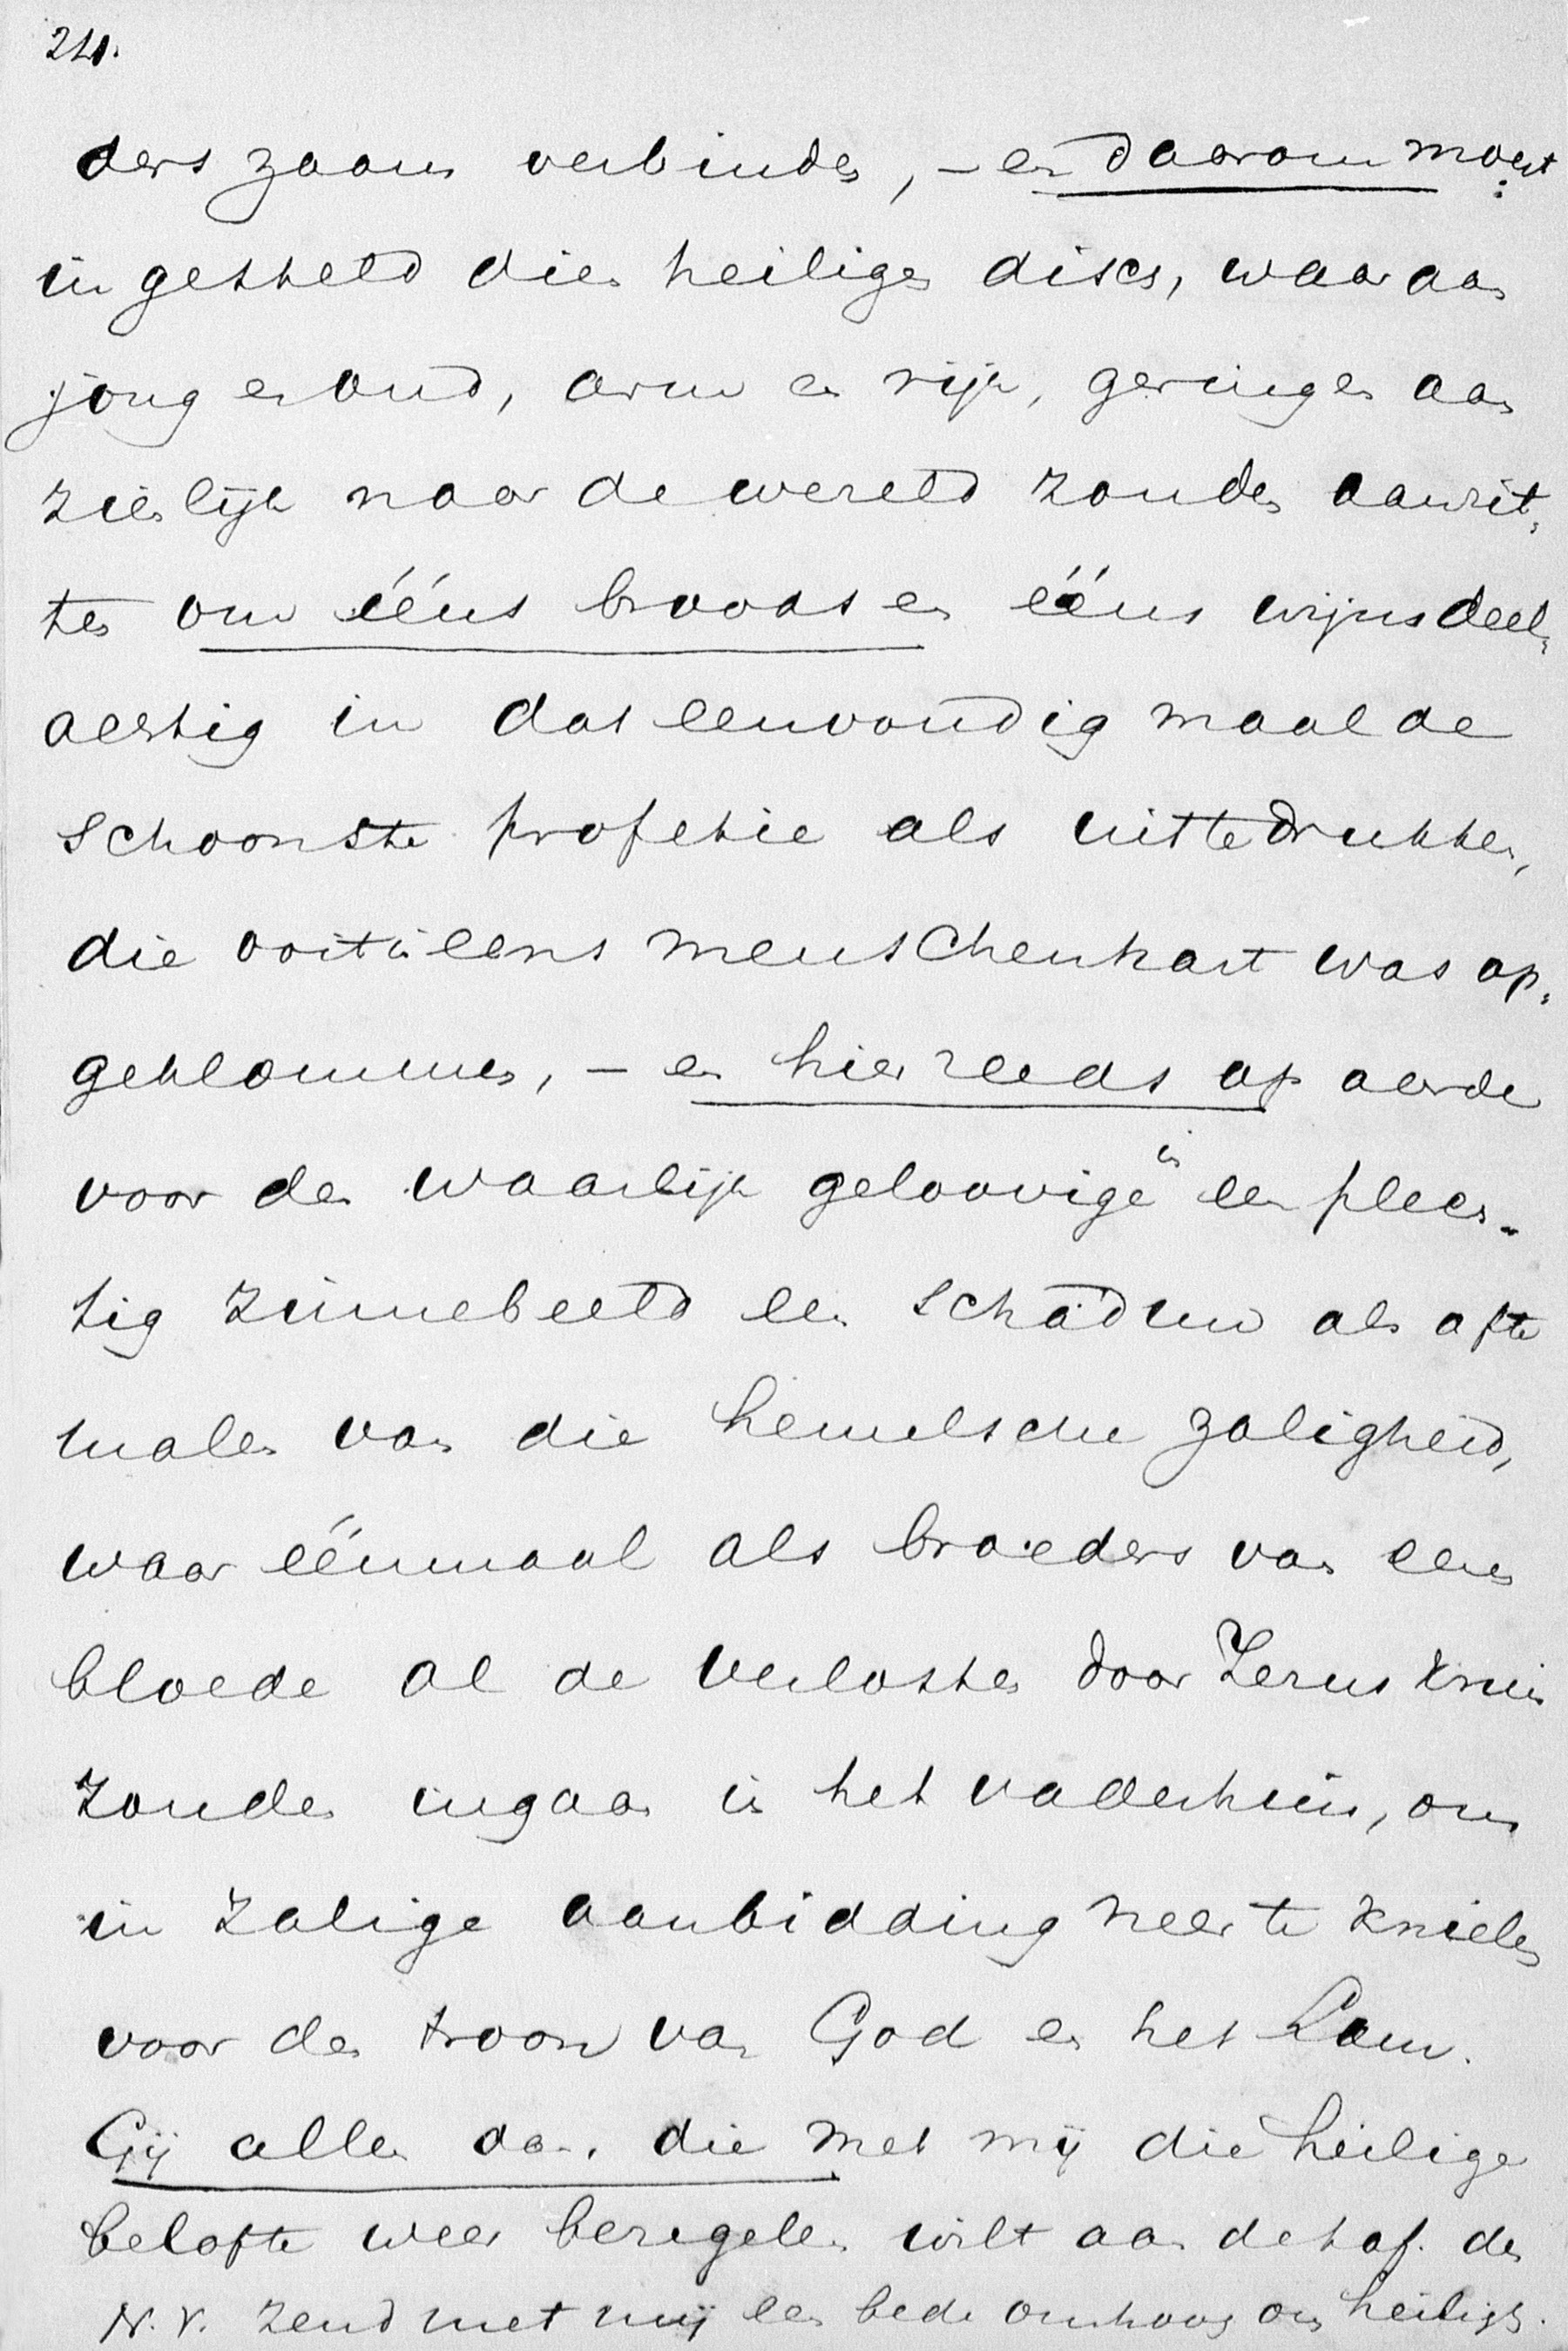 24.
ders zoon verbinden, – en daarom moest
ingesteld dien heiligen disch, waaraan
jong en oud, arm en rijk, geringen aan
zienlijk naar de wereld zouden aanzit,
ten om ééns broods en ééns wijns deel,
achtig in dat eenvoudig maal de
schoonste profetie als uittedrukken,
die ooit in eens menschenhart was op,
geklommen, – en hier reeds op aarde
voor den waarlijk geloovige in een plech-
tig zinnebeeld een schaduw als afte
malen van die hemelsche zaligheid,
waar éénmaal als broeders van eenen
bloede al de verlosten door Jezus kruis
zouden ingaan in het vaderhuis, om
in zalige aanbidding neer te knielen
voor den troon van God en het Lam.
Gij allen dan, die met mij die heilige
belofte weer bezegelen wilt aan de taf. des
N. V. zend met mij een bede omhoog om heilig.